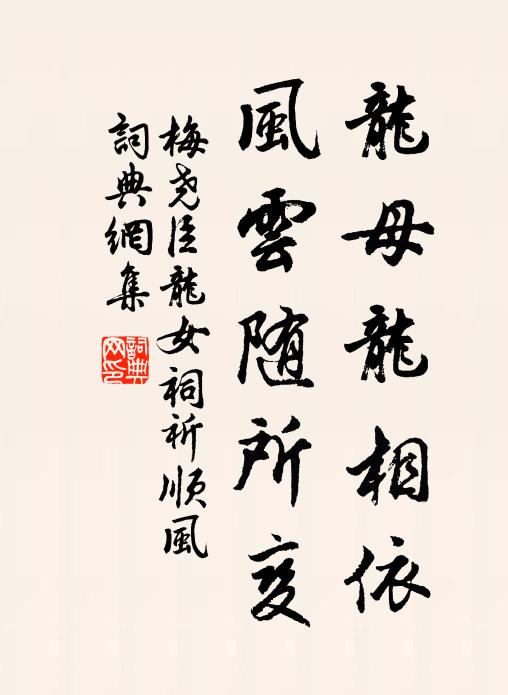 龍母龍相依
風雲隨所變
梅堯臣龍女祠祈順風
詞典網集
詞典網印